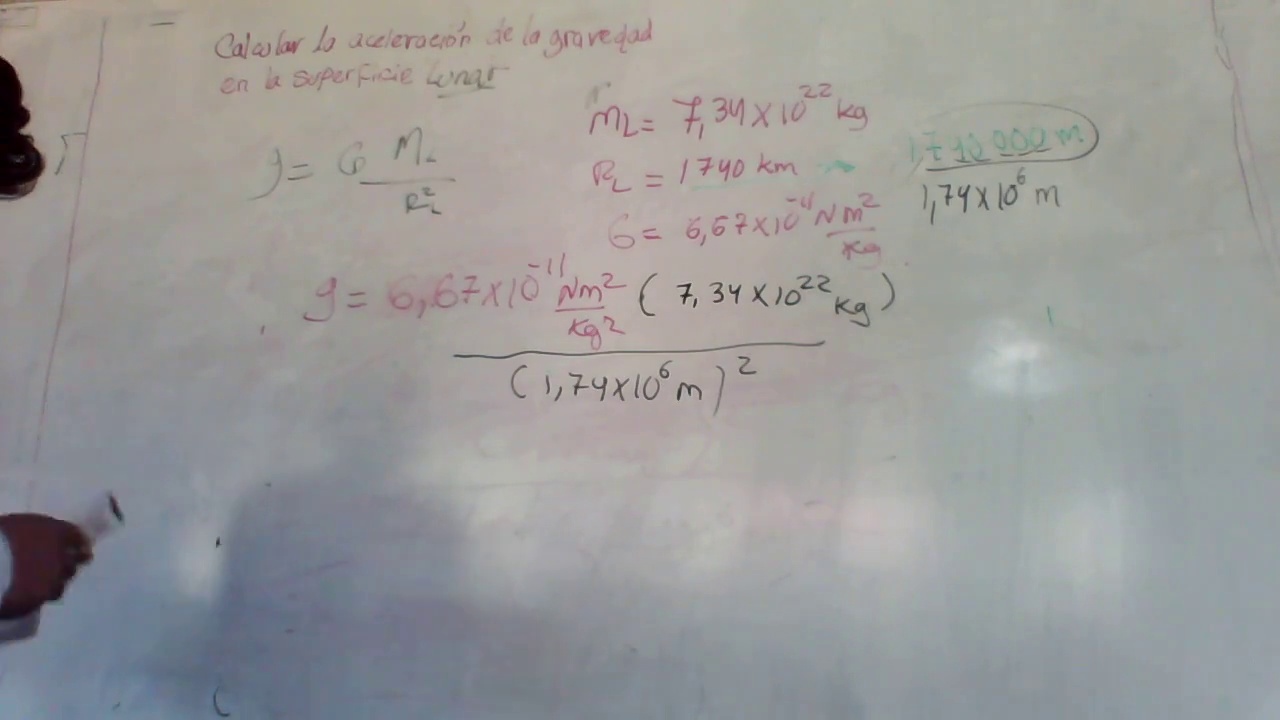 Calcular la aceleración de la gravedad
en la superficie Lunar
g = G M_L / R_L^2
M_L = 7,34 x 10^22 kg
R_L = 1740 km → 1,740 000 m
1,74 x 10^6 m
G = 6,67 x 10^-11 Nm^2 / kg
g = 6,67 x 10^-11 Nm^2 / kg^2 ( 7,34 x 10^22 kg )
( 1,74 x 10^6 m )^2